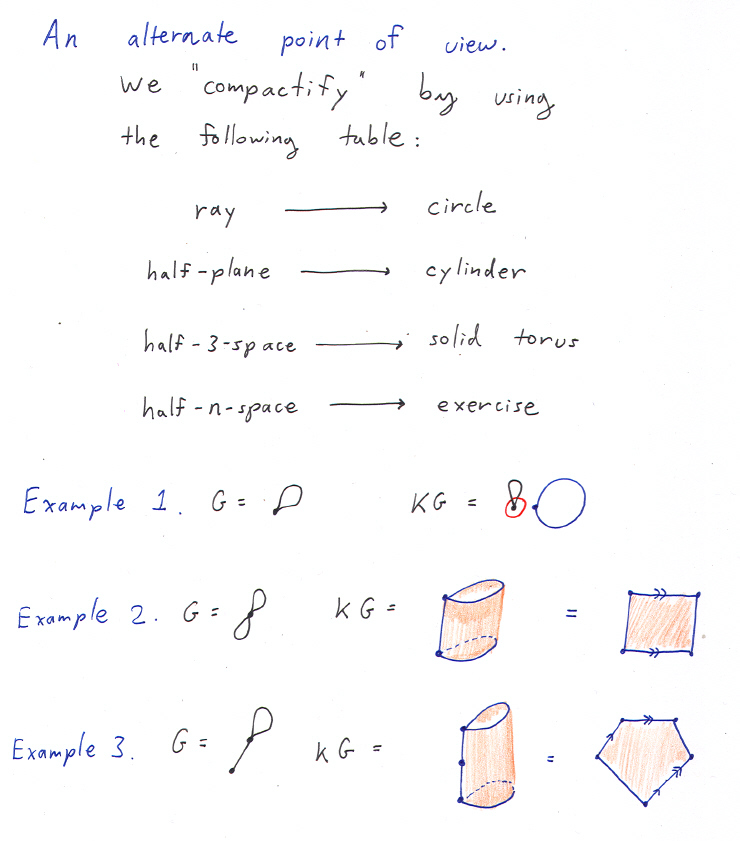 An alternate point of view.
We "compactify" by using
the following table:
ray → circle
half-plane → cylinder
half-3-space → solid torus
half-n-space → exercise
Example 1. G = KG =
Example 2. G = KG = =
Example 3. G = KG = =